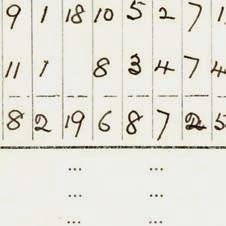 9 1 18 10 5 2 7 1
11 1 8 3 4 7 4
8 2 19 6 8 7 5
... ...
... ...
... ...